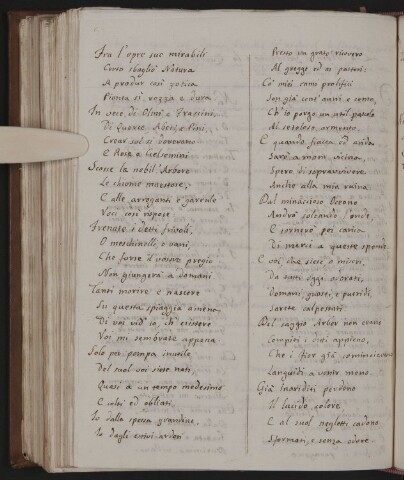 Fra l'opre sue mirabili
Certo sbagliò Natura
A produr così zotica
Pianta sì rozza e dura.
In vece di Olmi, e Frassini,
Di Querce, Abeti, e Pini,
Crear sol si dovevano
E Rose, e Gelsomini.
Scosse la nobil' Arbore
Le chiome maestose,
E alle arroganti e garrule
Voci così rispose
Frenate i detti frivoli,
O meschinelli, o vani,
Che forse il vostro pregio
Non giungerà a domani.
Tanti morire e nascere
Su questa spiaggia amena
Di voi vid' io, ch'esistere
Voi mi sembrate appena
Solo per pompa inutile
Del suol voi siete nati,
Quasi a un tempo medesimo
E colti ed obliati.
Io dalla spessa grandine,
Io dagli estivi ardori
Presto un grato ricovero
Al gregge ed ai pastori:
Co' miei rami prolifici
Son già cent' anni, e cento,
Ch'io porgo un util pascolo
Al setoloso armento.
E quando fiacca ed arida
Sarò a morir vicina,
Spero di sopravvivere
Anche alla mia ruina.
Dal minaccioso Oceano
Andrò solcando l'onde,
E tornerò poi carica
Di merci a queste sponde
E voi, che siete, o miseri,
Da tanti oggi adorati,
Domani guasti e putridi,
Sarete calpestati.
Del saggio Arbor non erano
Compiti i detti appieno,
Che i fior già cominciavano
Languidi a venir meno.
Già inariditi perdono
Il lucido colore
E al suol negletti cadono
Sformati, e senza odore.